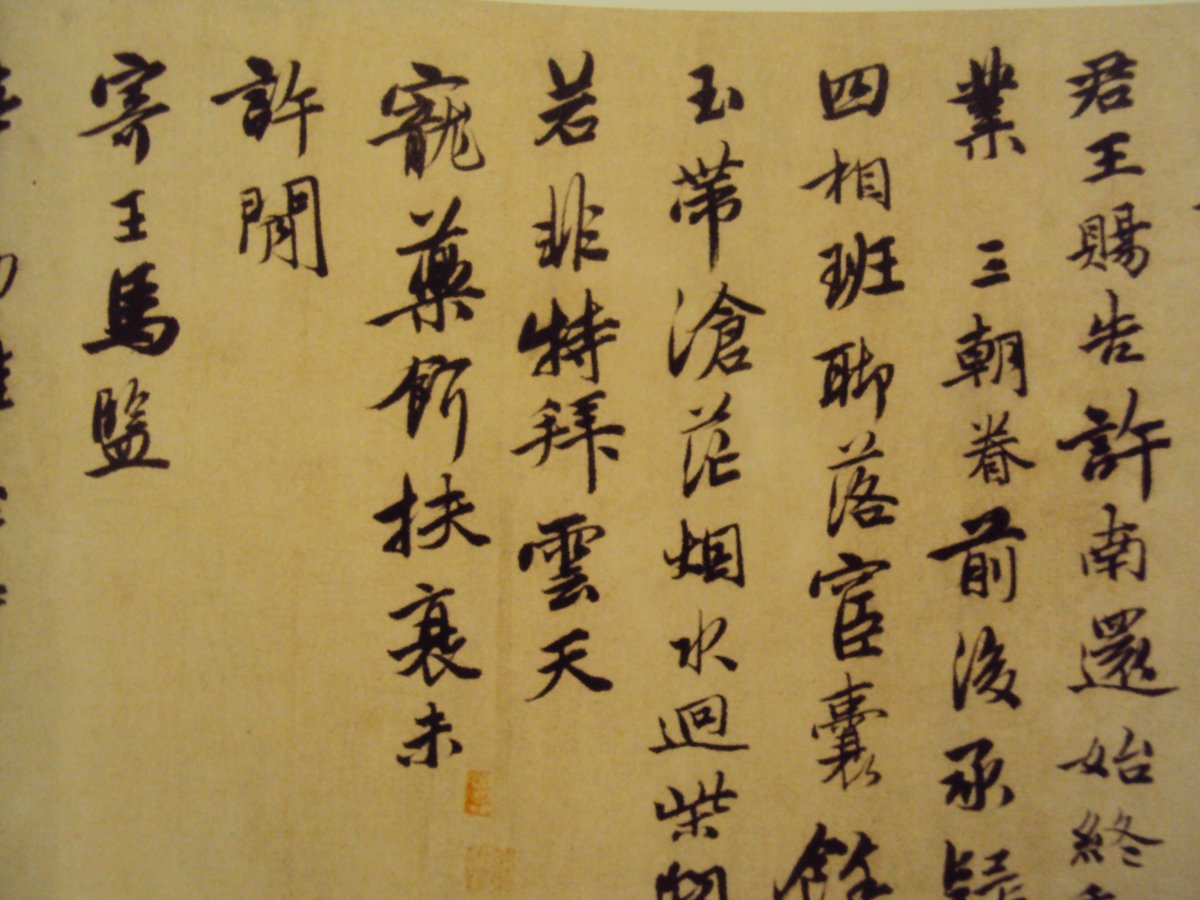 君王賜告許南還始終
業 三朝眷前後承疑
四相班聊落宦囊餘
玉帶滄茫烟水迴柴門
若非特拜雲天
寵藥餌扶衰未
許閒
寄王馬監